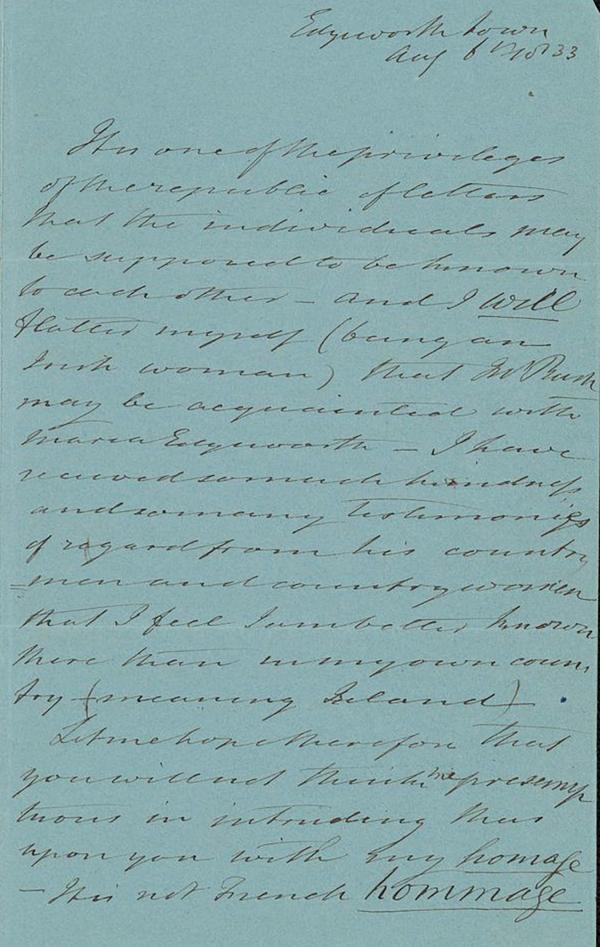 Edgeworth town
Aug 6th 1833
It is one of the privileges
of the republic of letters
that the individuals may
be supposed to be known
to each other – and I will
flatter myself (being an
Irish woman) that Mr Rush
may be acquainted with
Maria Edgeworth – I have
received so much kindness
and so many testimonies
of regard from his country
=men and countrywomen
that I feel I am better known
there than in my own coun
try – (meaning Ireland) –
Let me hope therefore that
you will not think me presump
tuous in intruding thus
upon you with my homage
– It is not French hommage